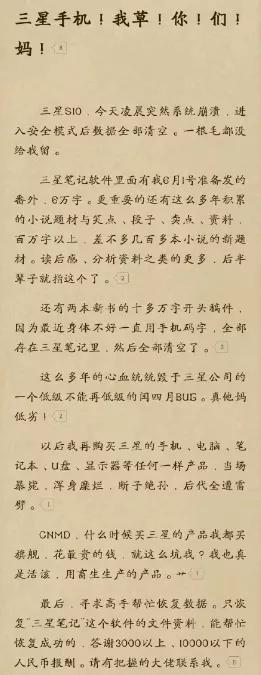 三星手机！我草！你！们！
妈！
三星S10，今天凌晨突然系统崩溃，进
入安全模式后数据全部清空。一根毛都没
给我留。
三星笔记软件里面有我6月1号准备发的
番外，6万字。更重要的还有这么多年积累
的小说题材与笑点、段子、卖点、资料，
百万字以上，差不多几百多本小说的新题
材。读后感、分析资料之类的更多，后半
辈子就指这个了。
还有两本新书的十多万字开头稿件，
因为最近身体不好一直用手机码字，全部
存在三星笔记里，然后全部清空了。
这么多年的心血统统毁于三星公司的
一个低级不能再低级的闰四月BUG。真他妈
低劣！
以后我再购买三星的手机、电脑、笔
记本、U盘、显示器等任何一样产品，当场
暴毙，浑身糜烂，断子绝孙，后代全遭雷
劈。
CNMD，什么时候买三星的产品我都买
旗舰，花最贵的钱，就这么坑我？我也真
是活该，用畜生生产的产品。艹
最后，寻求高手帮忙恢复数据。只恢
复"三星笔记"这个软件的文件资料，能帮忙
恢复成功的，答谢3000以上，10000以下的
人民币报酬。请有把握的大佬联系我。